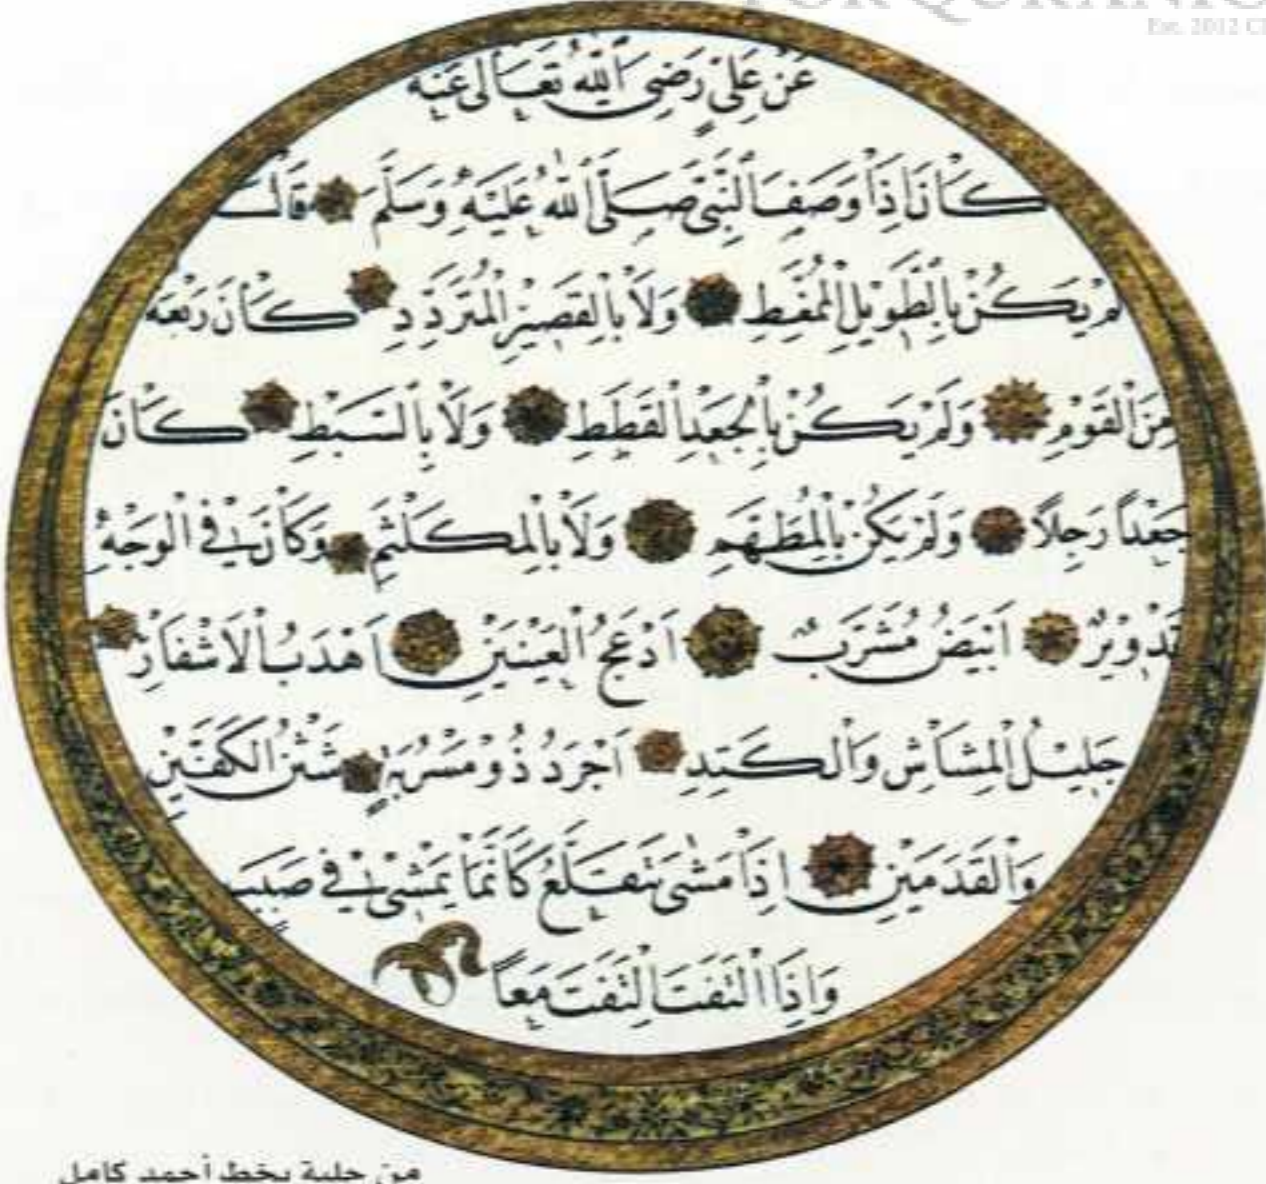 FOR QURANIC
Est. 2012 C
عَنْ عَلِيٍّ رَضِيَ اللّٰهُ تَعَالٰى عَنْهُ
كَانَ اِذَا وَصَفَ النَّبِيَّ صَلَّى اللّٰهُ عَلَيْهِ وَسَلَّمَ قَالَ
لَمْ يَكُنْ بِالطَّوِيلِ الْمُمَّغِطِ وَلَا بِالْقَصِيرِ الْمُتَرَدِّدِ كَانَ رَبْعَةً
مِنَ الْقَوْمِ وَلَمْ يَكُنْ بِالْجَعْدِ الْقَطَطِ وَلَا بِالسَّبْطِ كَانَ
جَعْداً رَجِلاً وَلَمْ يَكُنْ بِالْمُطَهَّمِ وَلَا بِالْمُكَلْثَمِ وَكَانَ فِي الْوَجْهِ
تَدْوِيرٌ اَبْيَضُ مُشْرَبٌ اَدْعَجُ الْعَيْنَيْنِ اَهْدَبُ الْاَشْفَارِ
جَلِيلُ الْمُشَاشِ وَالْكَتِدِ اَجْرَدُ ذُو مَسْرُبَةٍ شَثْنُ الْكَفَّيْنِ
وَالْقَدَمَيْنِ اِذَا مَشٰى يَتَقَلَّعُ كَاَنَّمَا يَمْشِي فِي صَبَبٍ
وَاِذَا الْتَفَتَ الْتَفَتَ مَعاً
من حلية بخط أحمد كامل